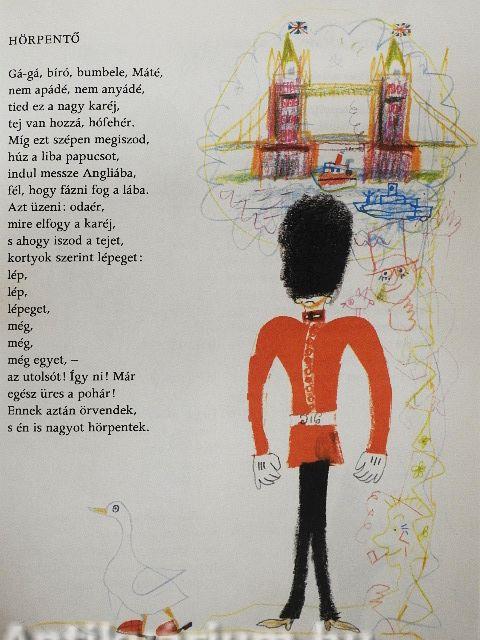 HÖRPENTŐ
Gá-gá, bíró, bumbele, Máté,
nem apádé, nem anyádé,
tied ez a nagy karéj,
tej van hozzá, hófehér.
Míg ezt szépen megiszod,
húz a liba papucsot,
indul messze Angliába,
fél, hogy fázni fog a lába.
Azt üzeni: odaér,
mire elfogy a karéj,
s ahogy iszod a tejet,
kortyok szerint lépeget:
lép,
lép,
lépeget,
még,
még,
még egyet, –
az utolsót! Így ni! Már
egész üres a pohár!
Ennek aztán örvendek,
s én is nagyot hörpentek.